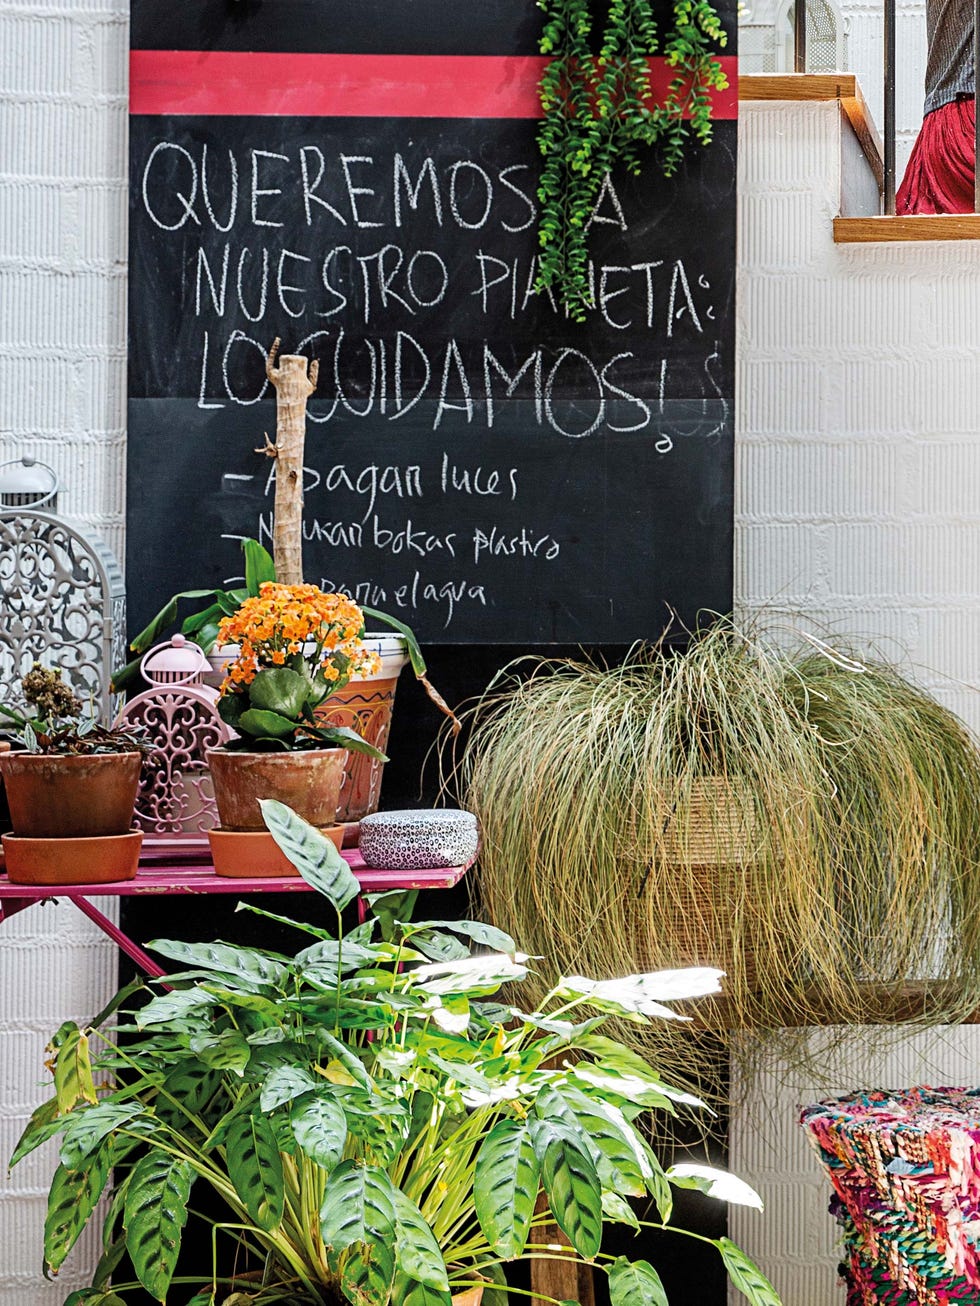 QUEREMOS A
NUESTRO PLANETA:
LO CUIDAMOS!
- Apagan luces
- bokas plastico
el agua